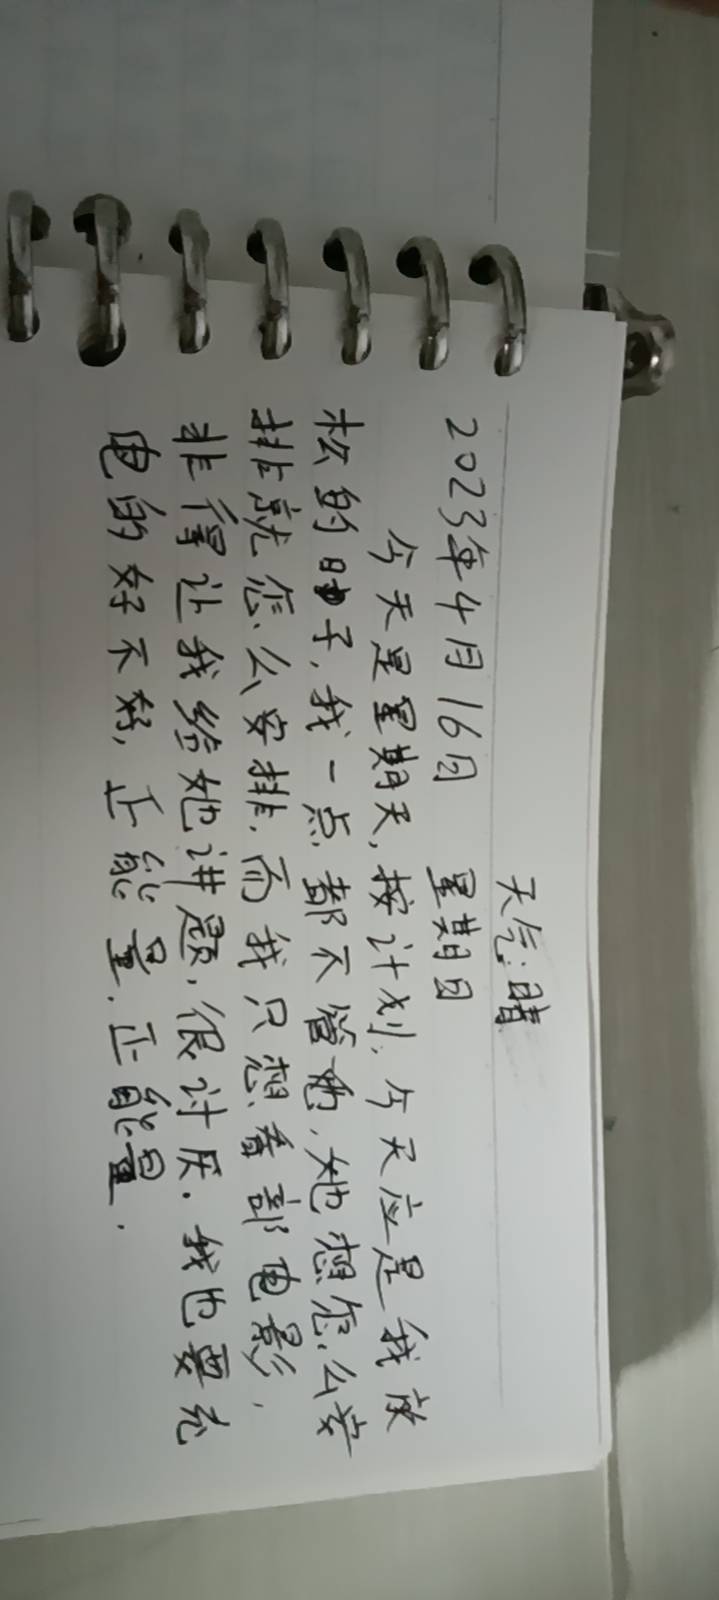 天气:晴
2023年4月16日 星期日
今天是星期天,按计划,今天应是我放
松的日子,我一点都不管她,她想怎么安
排就怎么安排,而我只想看部电影,
非得让我给她讲题,很讨厌.我也要充
电的好不好,正能量,正能量.